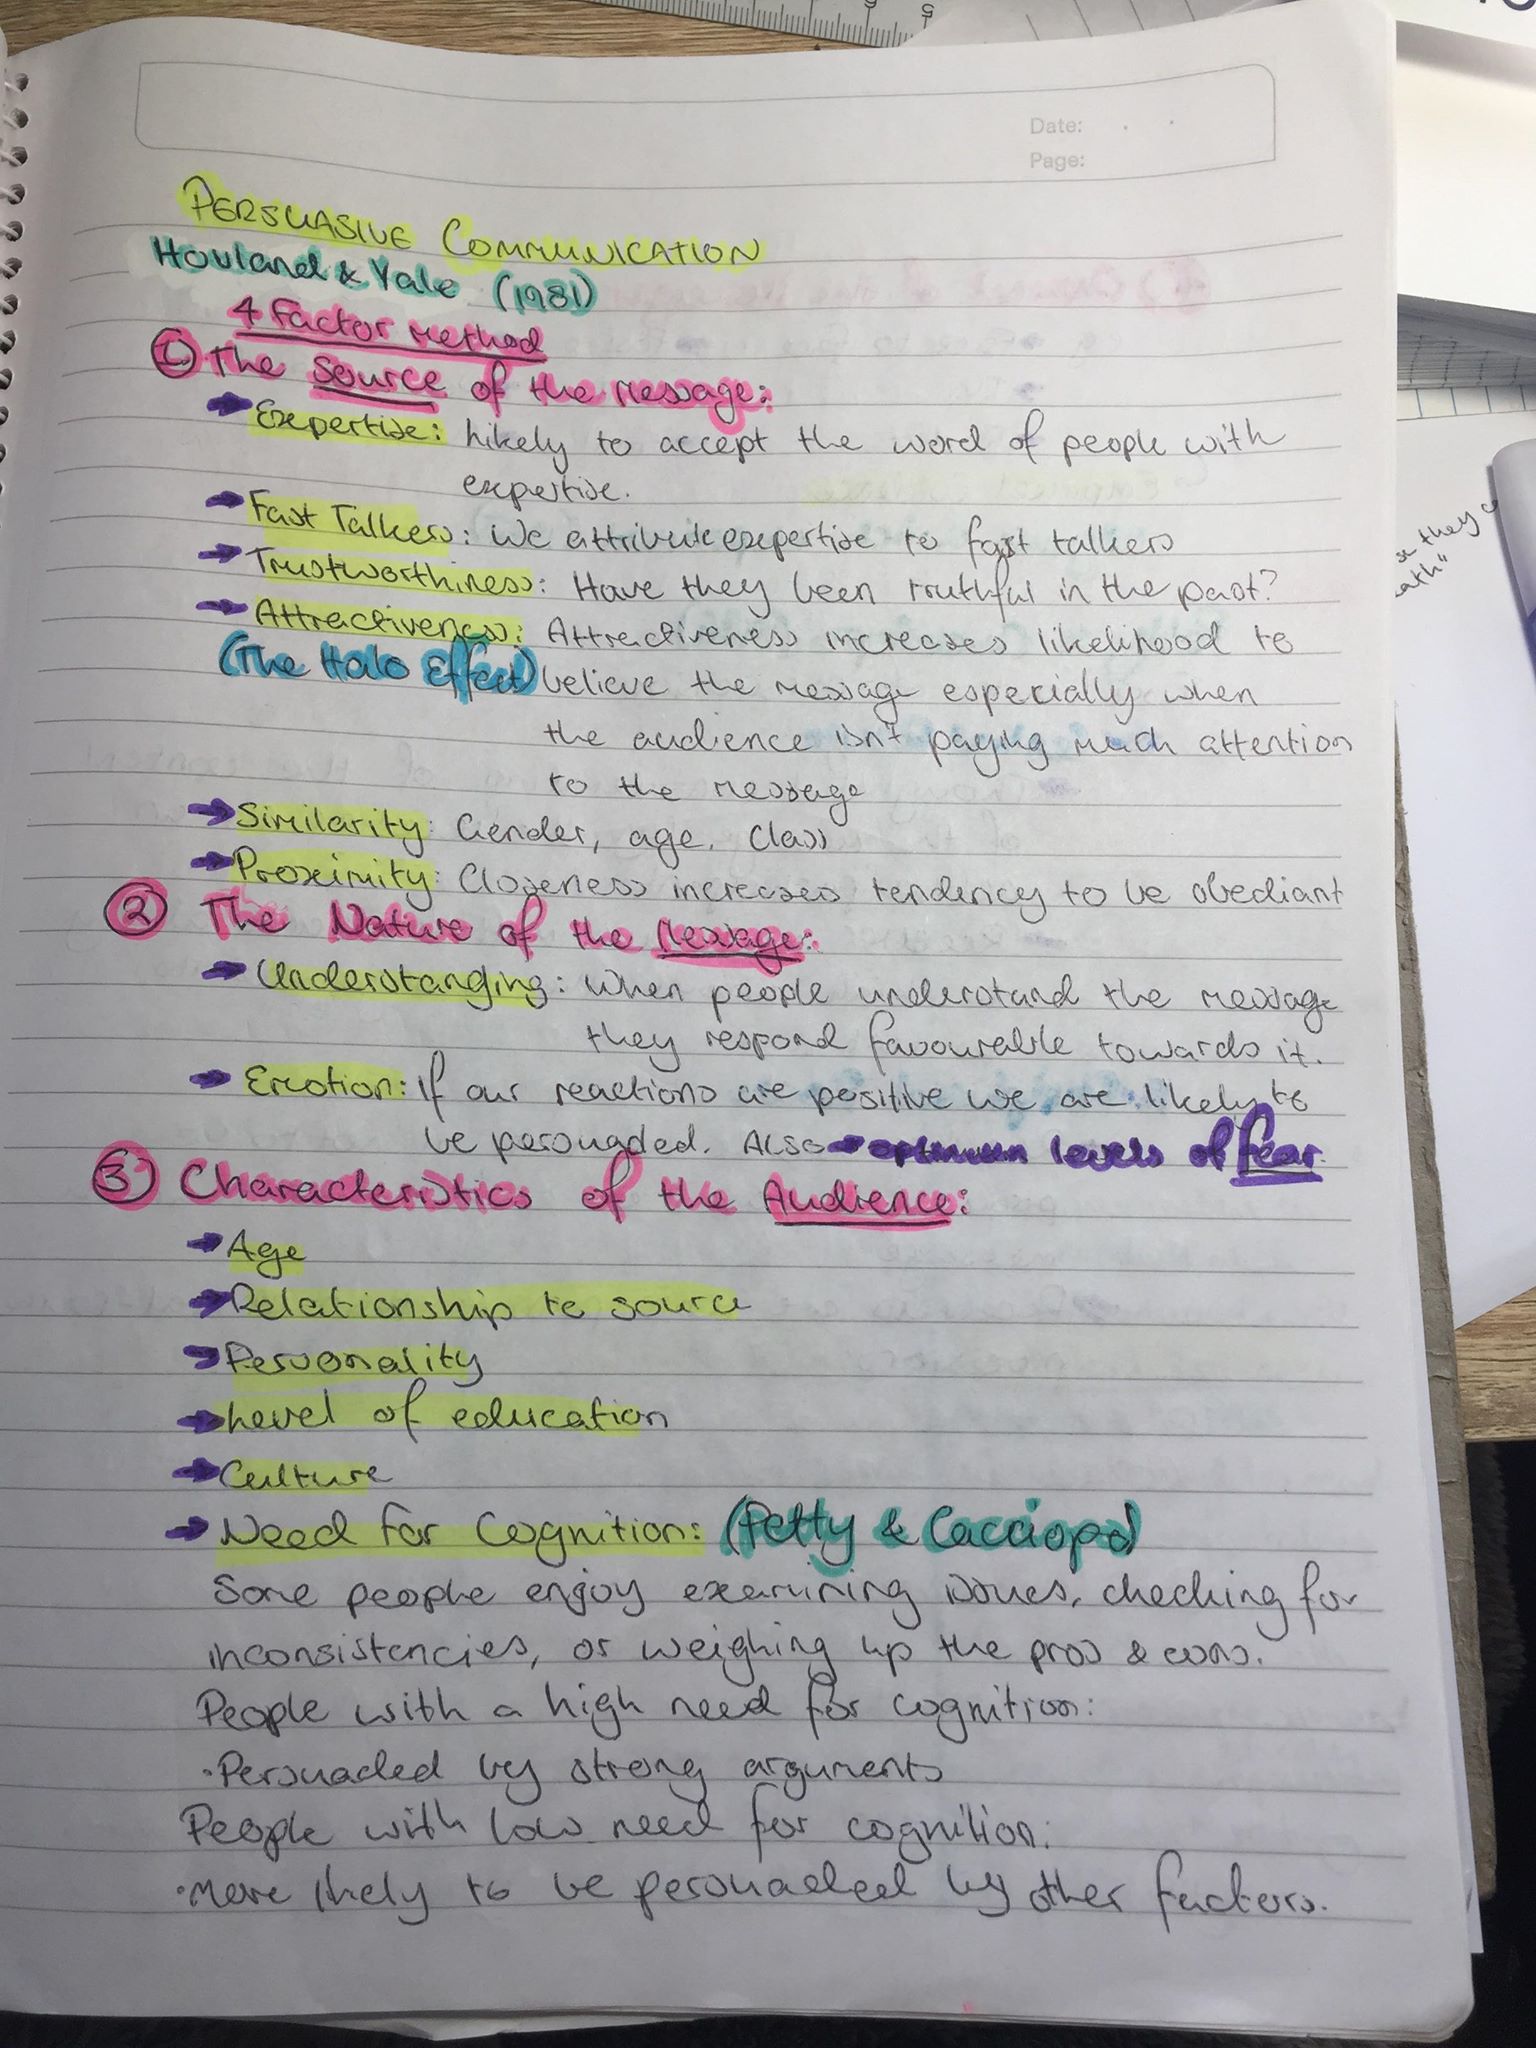 Date: . .
Page:
PERSUASIVE COMMUNICATION
Hovland & Yale (1981)
4 Factor Method
① The Source of the Message:
→ Expertise: Likely to accept the word of people with
expertise.
→ Fast Talkers: We attribute expertise to fast talkers
→ Trustworthiness: Have they been truthful in the past?
→ Attractiveness: Attractiveness increases likelihood to
(The Halo Effect) believe the message especially when
the audience isn't paying much attention
to the message
→ Similarity: Gender, age, Class
→ Proximity: Closeness increases tendency to be obediant
② The Nature of the Message:
→ Understanding: When people understand the message
they respond favourable towards it.
→ Emotion: If our reactions are positive we are likely to
be persuaded. Also → optimum levels of fear.
③ Characteristics of the Audience:
→ Age
→ Relationship to source
→ Personality
→ Level of education
→ Culture
→ Need for Cognition: (Petty & Cacciopo)
Some people enjoy examining issues, checking for
inconsistencies, or weighing up the pros & cons.
People with a high need for cognition:
· Persuaded by strong arguments
People with low need for cognition:
· More likely to be persuaded by other factors.
they